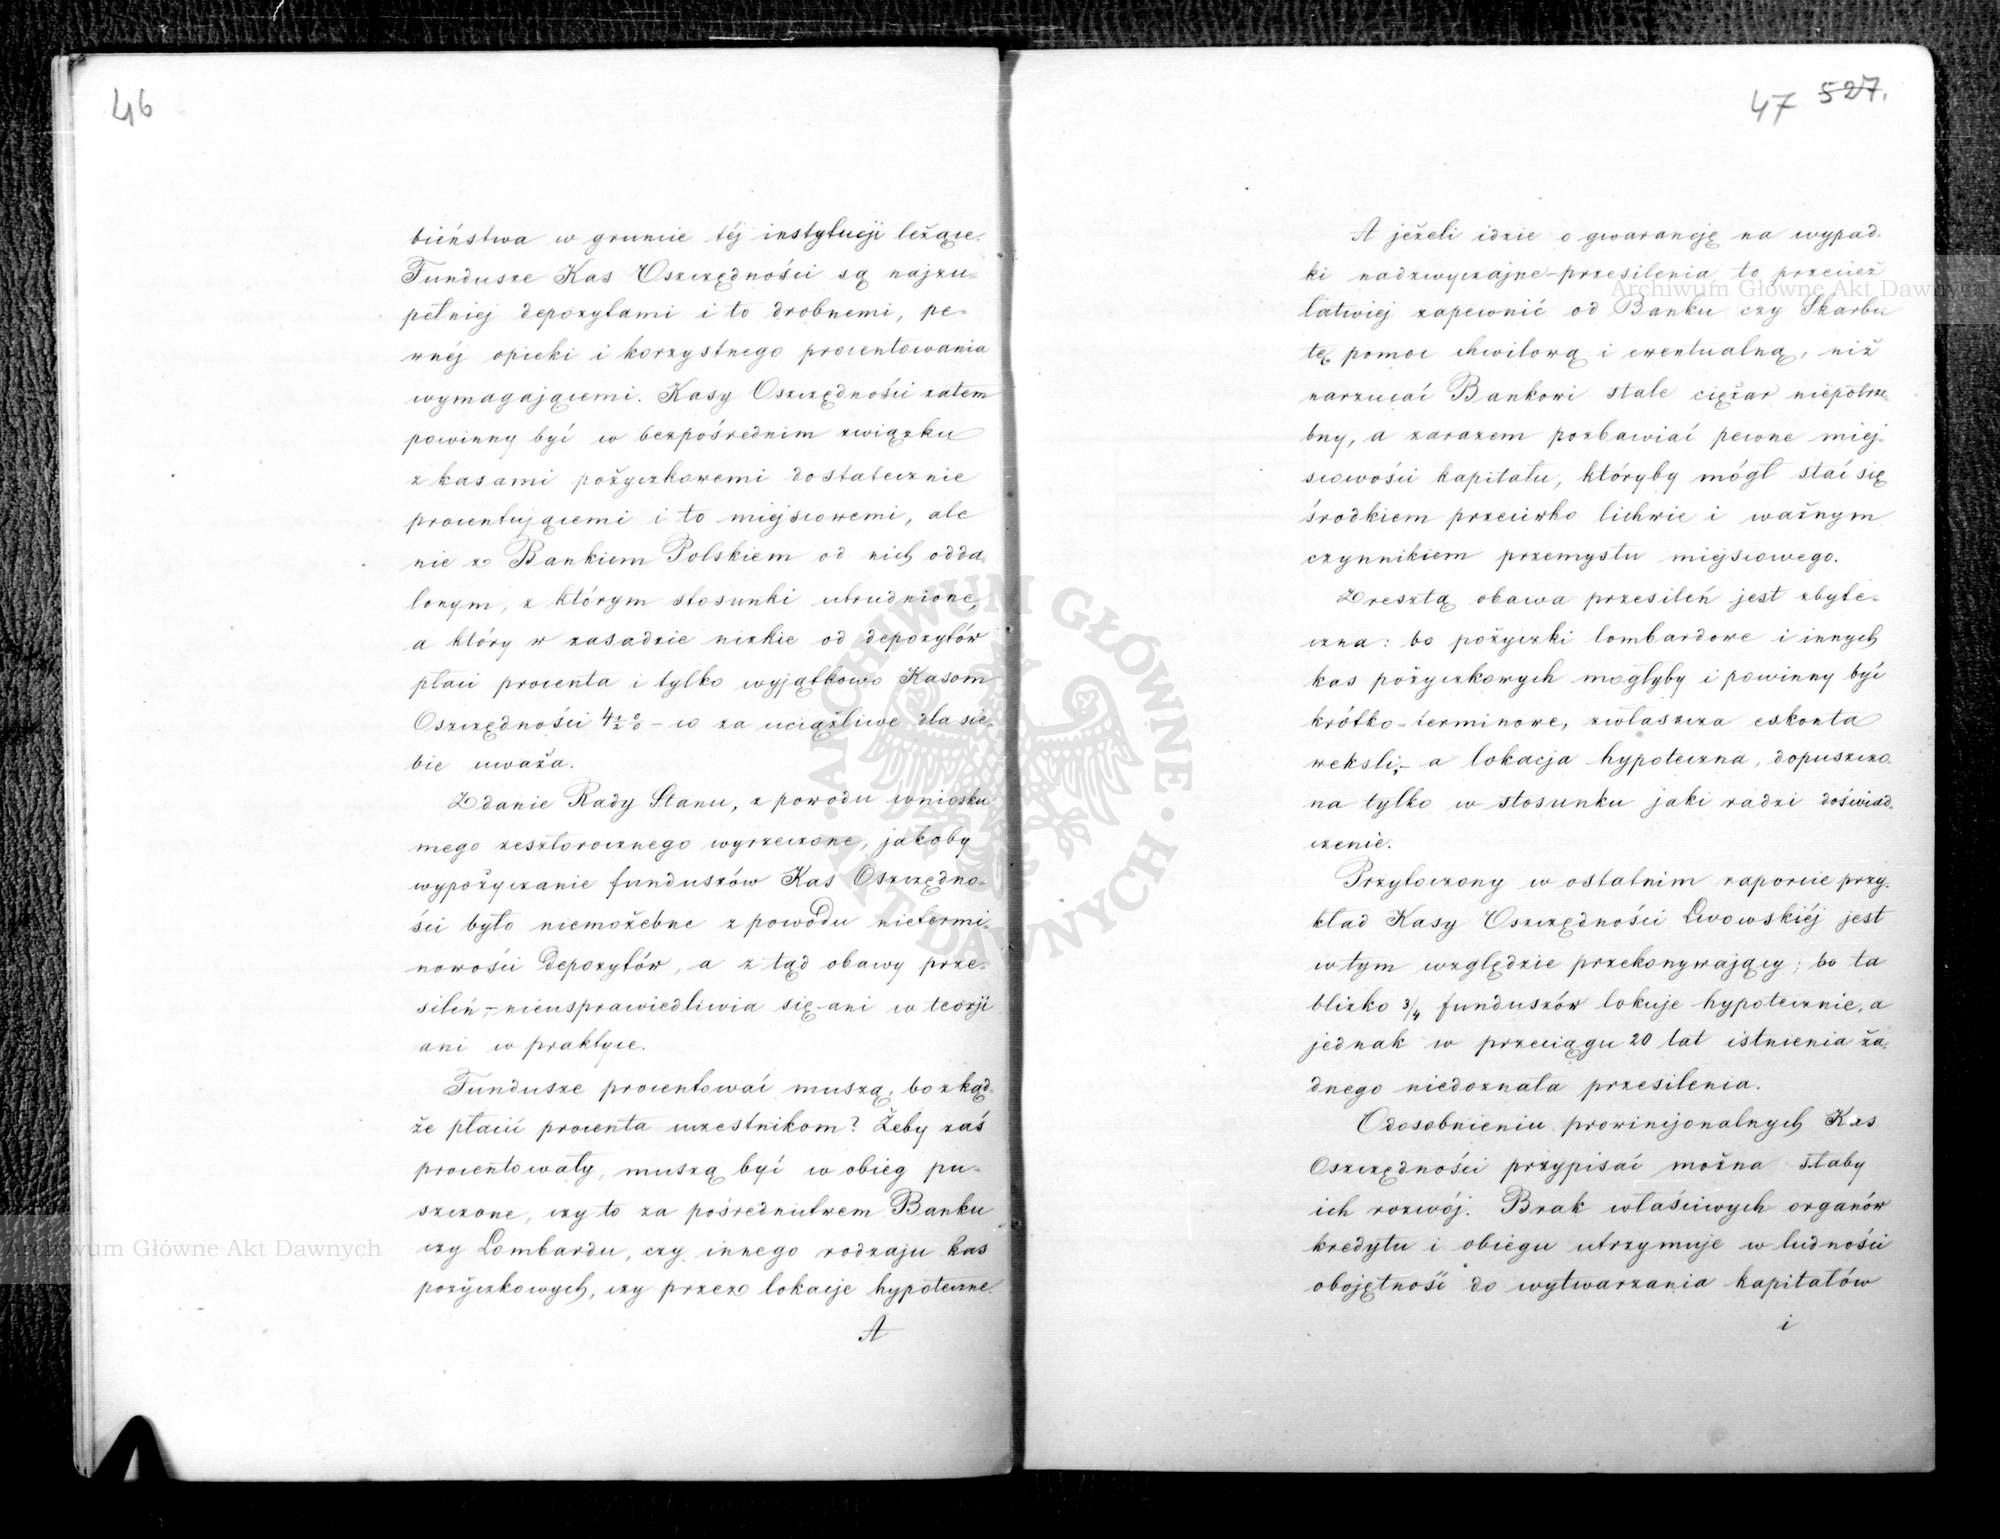 46
bieństwa w gruncie téj instytucji leżące.
Fundusze Kas Oszczędności są najzu-
pełniej depozytami i to drobnemi, pe-
wnéj opieki i korzystnego procentowania
wymagającemi. Kasy Oszczędności zatem
powinny być w bezpośrednim związku
z kasami pożyczkowemi dostatecznie
procentującemi i to miejscowemi, ale
nie z Bankiem Polskiem od nich odda-
lonym, z którym stosunki utrudnione,
a który w zasadzie nizkie od depozytów
płaci procenta i tylko wyjątkowo Kasom
Oszczędności 4½% – co za uciążliwe dla sie-
bie uważa.
Zdanie Rady Stanu, z powodu wniosku
mego zeszłorocznego wyrzeczone, jakoby
wypożyczanie funduszów Kas Oszczędno-
ści było niemożebne z powodu nietermi-
nowości Depozytów, a z tąd obawy prze-
sileń, – nieusprawiedliwia się ani w teorji
ani w praktyce.
Fundusze procentować muszą, bo zkąd-
że płacić procenta uczestnikom? Żeby zaś
procentowały, muszą być w obieg pu-
szczone, czy to za pośrednictwem Banku
czy Lombardu, czy innego rodzaju kas
pożyczkowych, czy przez lokacje hypoteczne.
A
47 527.
A jeżeli idzie o gwarancję na wypad-
ki nadzwyczajne – przesilenia, to przecież
łatwiej zapewnić od Banku czy Skarbu
tę pomoc chwilową i ewentualną, niż
narzucać Bankowi stale ciężar niepotrze-
bny, a zarazem pozbawiać pewne miej-
scowości kapitału, któryby mógł stać się
środkiem przeciwko lichwie i ważnym
czynnikiem przemysłu miejscowego.
Zresztą obawa przesileń jest zbyte-
czna: bo pożyczki lombardowe i innych
kas pożyczkowych mogłyby i powinny być
krótko-terminowe, zwłaszcza eskonta
weksli, – a lokacja hypoteczna, dopuszczo-
na tylko w stosunku jaki radzi doświad-
czenie.
Przytoczony w ostatnim raporcie przy-
kład Kasy Oszczędności Lwowskiéj jest
w tym względzie przekonywający; bo ta
blizko 3/4 funduszów lokuje hypotecznie, a
jednak w przeciągu 20 lat istnienia ża-
dnego niedoznała przesilenia.
Odosobnieniu prowincjonalnych Kas
Oszczędności przypisać można słaby
ich rozwój. Brak właściwych organów
kredytu i obiegu utrzymuje w ludności
obojętność do wytwarzania kapitałów
i
Archiwum Główne Akt Dawnych
Archiwum Główne Akt Dawnych
ARCHIWUM GŁÓWNE · AKT DAWNYCH ·